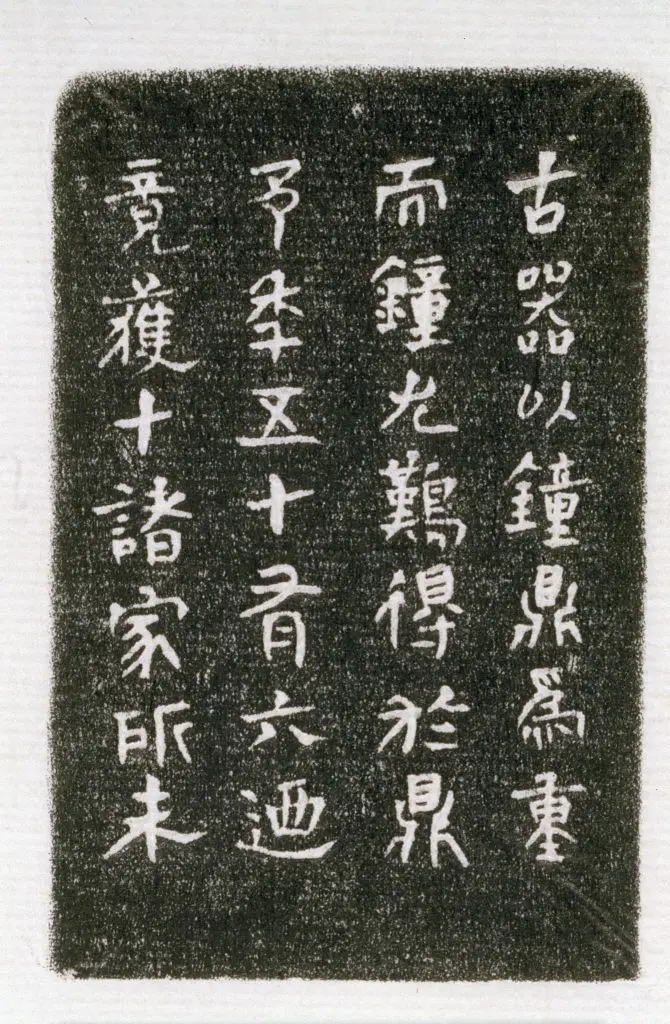 古器以鐘鼎爲重
而鐘尤難得於鼎
予秊五十有六迺
竟獲十諸家所未